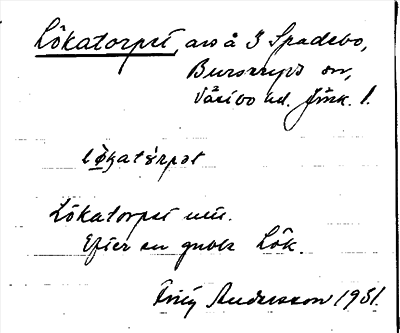 Lökatorpet, avs å 3 Spadebo,
Burseryds sn,
Västbo hd. Jönk. l.
Lökatorpet utt.
Efter en gubbe Lök.
Andersson 1931.